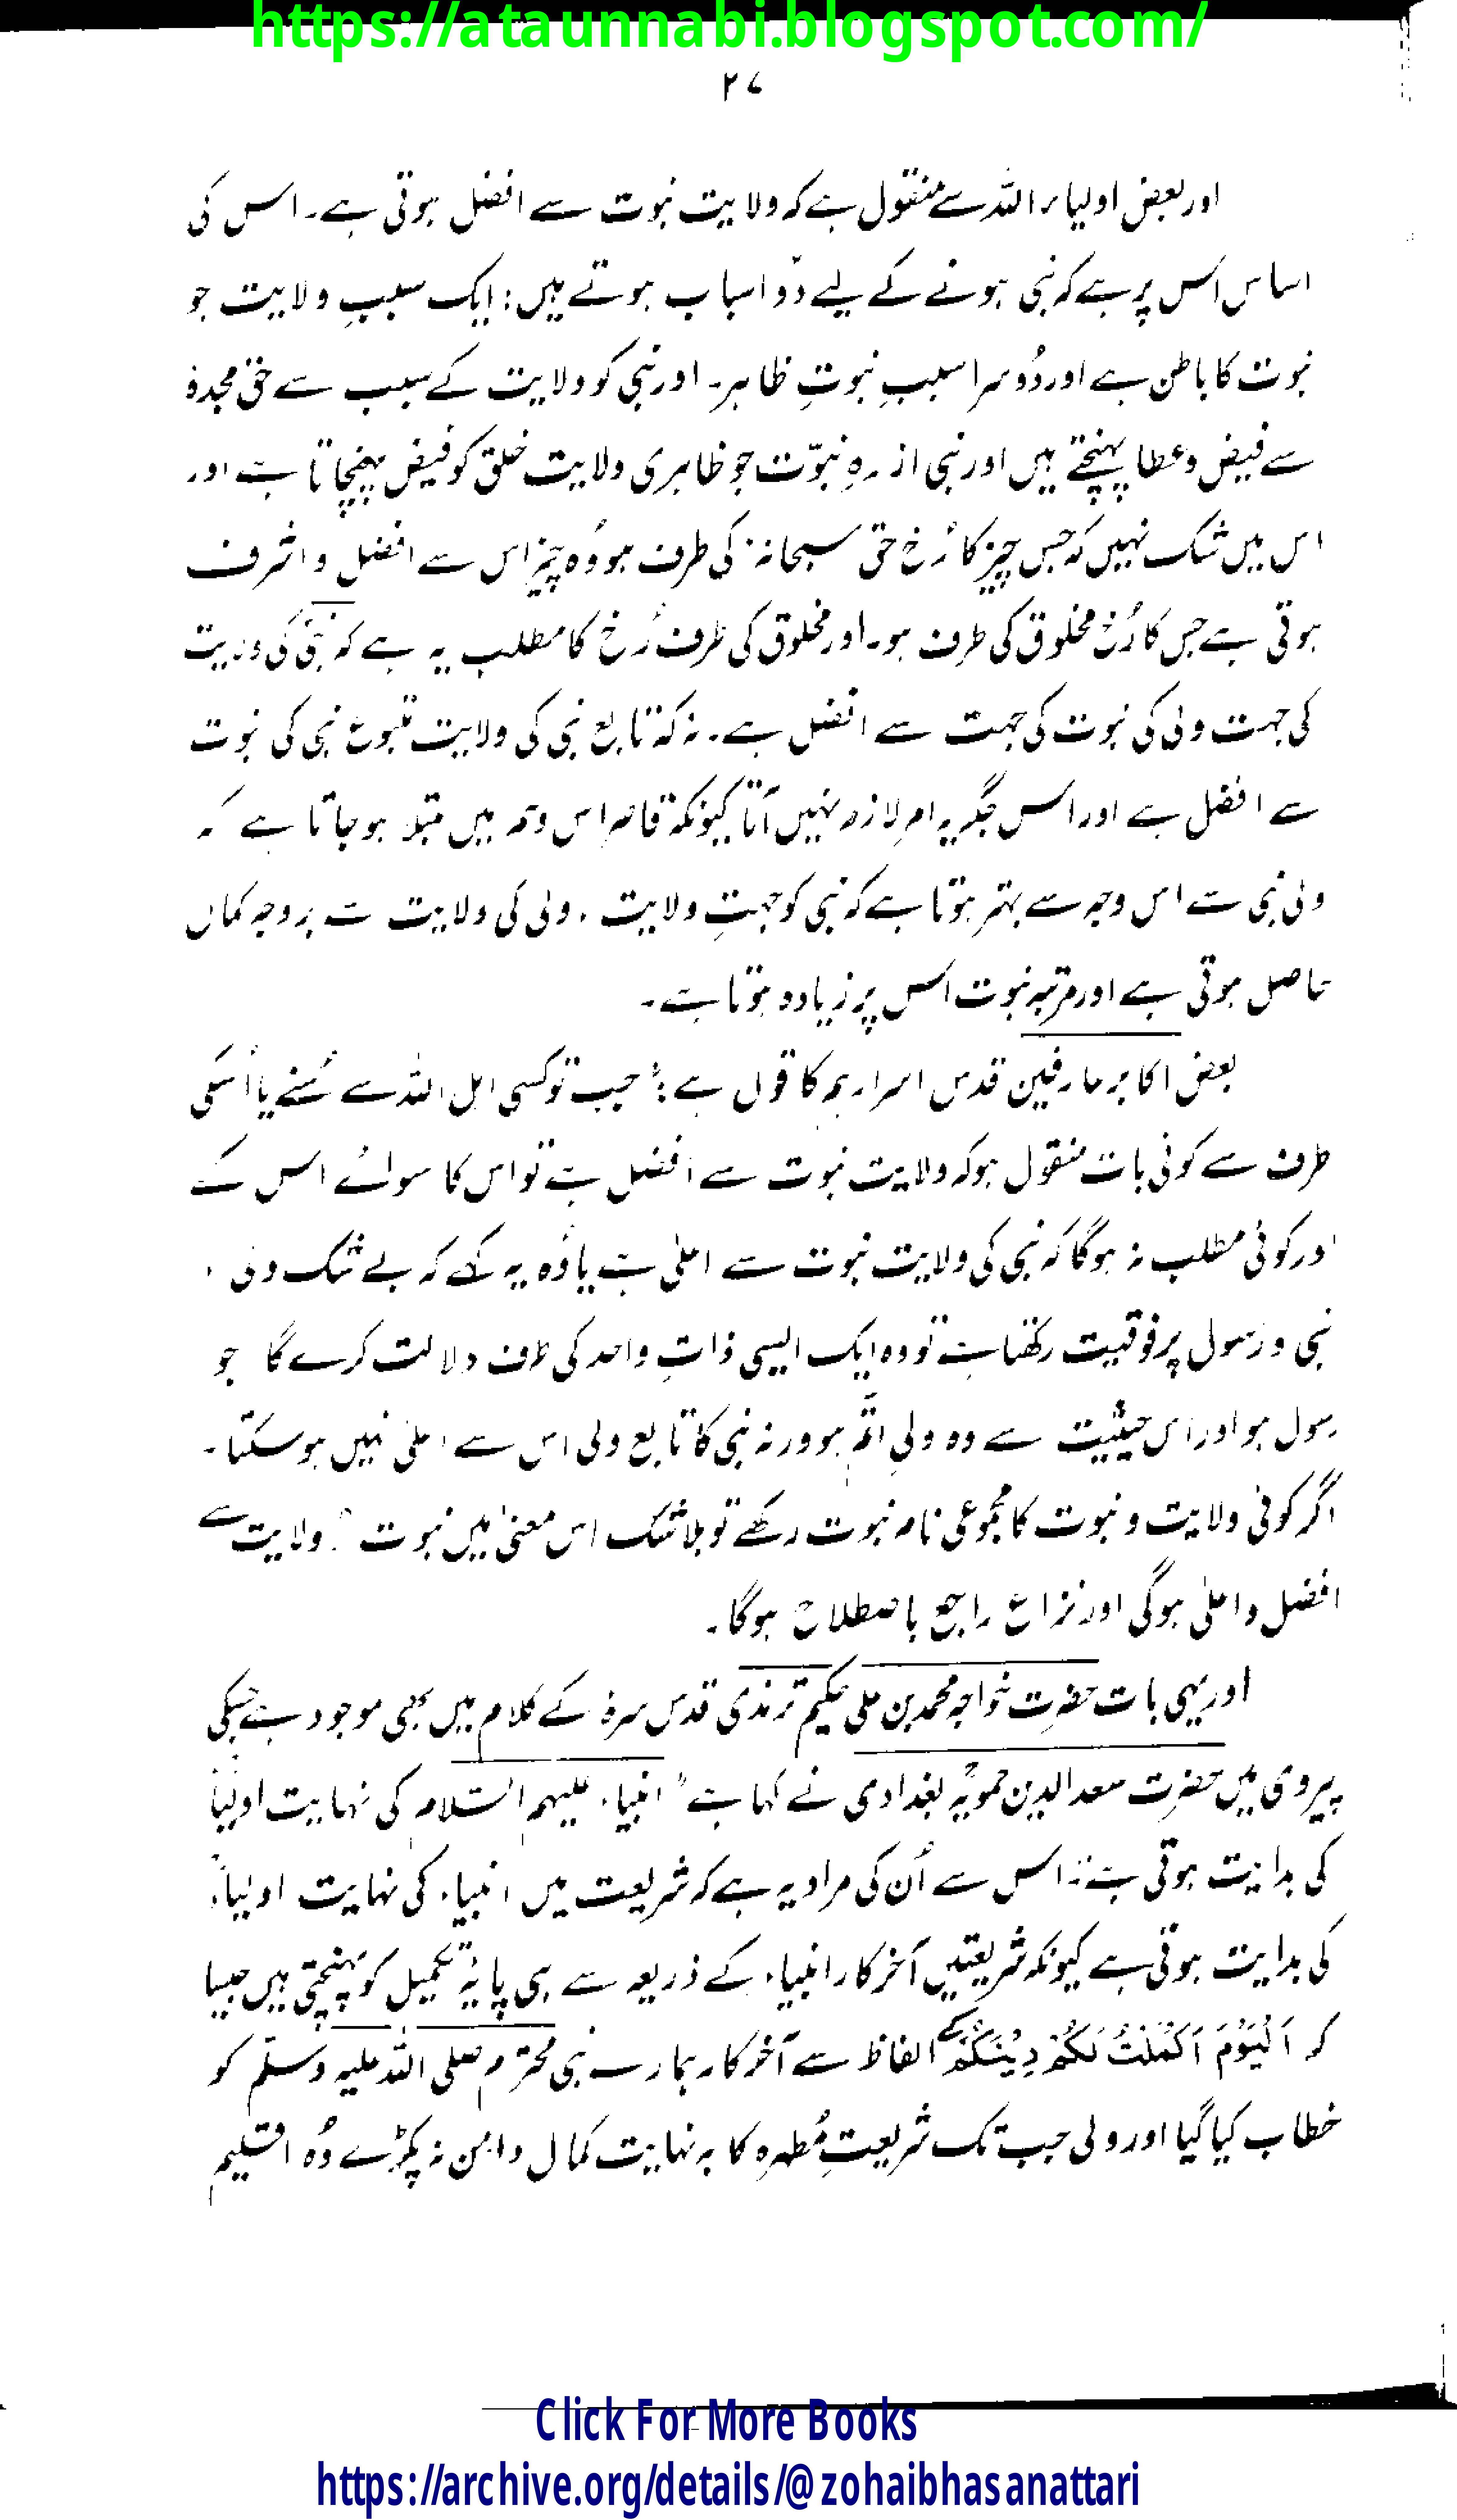 https://ataunnabi.blogspot.com/
۲۷
اور بعض اولیاء اللہ سے منقول ہے کہ ولایت نبوت سے افضل ہوتی ہے۔ اس کی
اساس اس پر ہے کہ نبی ہونے کے لیے دو اسباب ہوتے ہیں : ایک سببِ ولایت جو
نبوت کا باطن ہے اور دُوسرا سببِ نبوتِ ظاہر۔ اور نبی کو ولایت کے سبب سے حق مجدہٗ
سے فیض و عطا پہنچتے ہیں اور نبی از رہِ نبوّت جو ظاہری ولایت خلق کو فیض پہنچاتا ہے اور
اس میں شک نہیں کہ جس چیز کا رُخ حق سبحانہٗ کی طرف ہو وُہ چیز اس سے افضل و اشرف
ہوتی ہے جس کا رُخ مخلوق کی طرف ہو۔ اور مخلوق کی طرف رُخ کا مطلب یہ ہے کہ نبی کی ولایت
کی جہت ولی کی نبوت کی جہت سے افضل ہے۔ نہ کہ تابع نبی کی ولایت متبوع نبی کی نبوت
سے افضل ہے اور اس جگہ یہ امر لازم نہیں آتا کیونکہ قاصر اس وہم میں مبتلا ہو جاتا ہے کہ
ولی نبی سے اس وجہ سے بہتر ہوتا ہے کہ نبی کو جہتِ ولایت ، ولی کی ولایت سے بروجہ کمال
حاصل ہوتی ہے اور مرتبہ نبوت اس پر زیادہ ہوتا ہے۔
بعض اکابر عارفین قدس اسرارہم کا قول ہے : "جب تو کسی اہل اللہ سے سُنے یا اُسکی
طرف سے کوئی بات منقول ہو کہ ولایت نبوت سے افضل ہے تو اس کا سوائے اس کے
اور کوئی مطلب نہ ہوگا کہ نبی کی ولایت نبوت سے اعلیٰ ہے یا وُہ یہ کہے کہ بے شک ولی ،
نبی و رسول پر فوقیت رکھتا ہے تو وہ ایک ایسی ذاتِ واحد کی طرف دلالت کرے گا جو
رسول ہو اور اس حیثیت سے وہ ولیِ اتم ہو ورنہ نبی کا تابع ولی اس سے اعلیٰ نہیں ہو سکتا۔
اگر کوئی ولایت و نبوت کا مجموعی نام نبوت رکھے تو بلا شک اس معنیٰ میں نبوت ، ولایت سے
افضل و اعلیٰ ہوگی اور نزاع راجع باصطلاح ہوگا۔
اور یہی بات حضرت خواجہ محمد بن علی حکیم ترمذی قدس سرہٗ کے کلام میں بھی موجود ہے جسکی
پیروی میں حضرت سعد الدین حمویہؒ بغدادی نے کہا ہے "انبیاء علیہم السّلام کی نہایت اولیاءؒ
کی بدایت ہوتی ہے" اس سے اُن کی مراد یہ ہے کہ شریعت میں انبیاء کی نہایت اولیاءؒ
کی بدایت ہوتی ہے کیونکہ شریعتیں آخر کار انبیاء کے ذریعہ سے ہی پایۂ تکمیل کو پہنچتی ہیں جیسا
کہ اَلْیَوْمَ اَکْمَلْتُ لَکُمْ دِیْنَکُمْ کے الفاظ سے آخر کار ہمارے نبی محترم صلی اللہ علیہ وسلّم کو
خطاب کیا گیا اور ولی جب تک شریعتِ مُطہرہ کا بہ نہایت کمال دامن نہ پکڑے وُہ اقلیم
Click For More Books
https://archive.org/details/@zohaibhasanattari